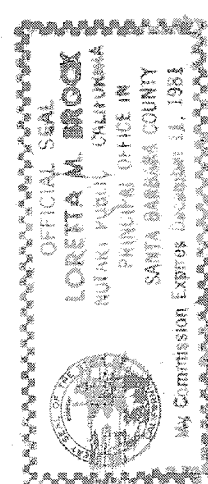 OFFICIAL SEAL
LORETTA M. BROCK
NOTARY PUBLIC CALIFORNIA
PRINCIPAL OFFICE IN
SANTA BARBARA COUNTY
My Commission Expires December